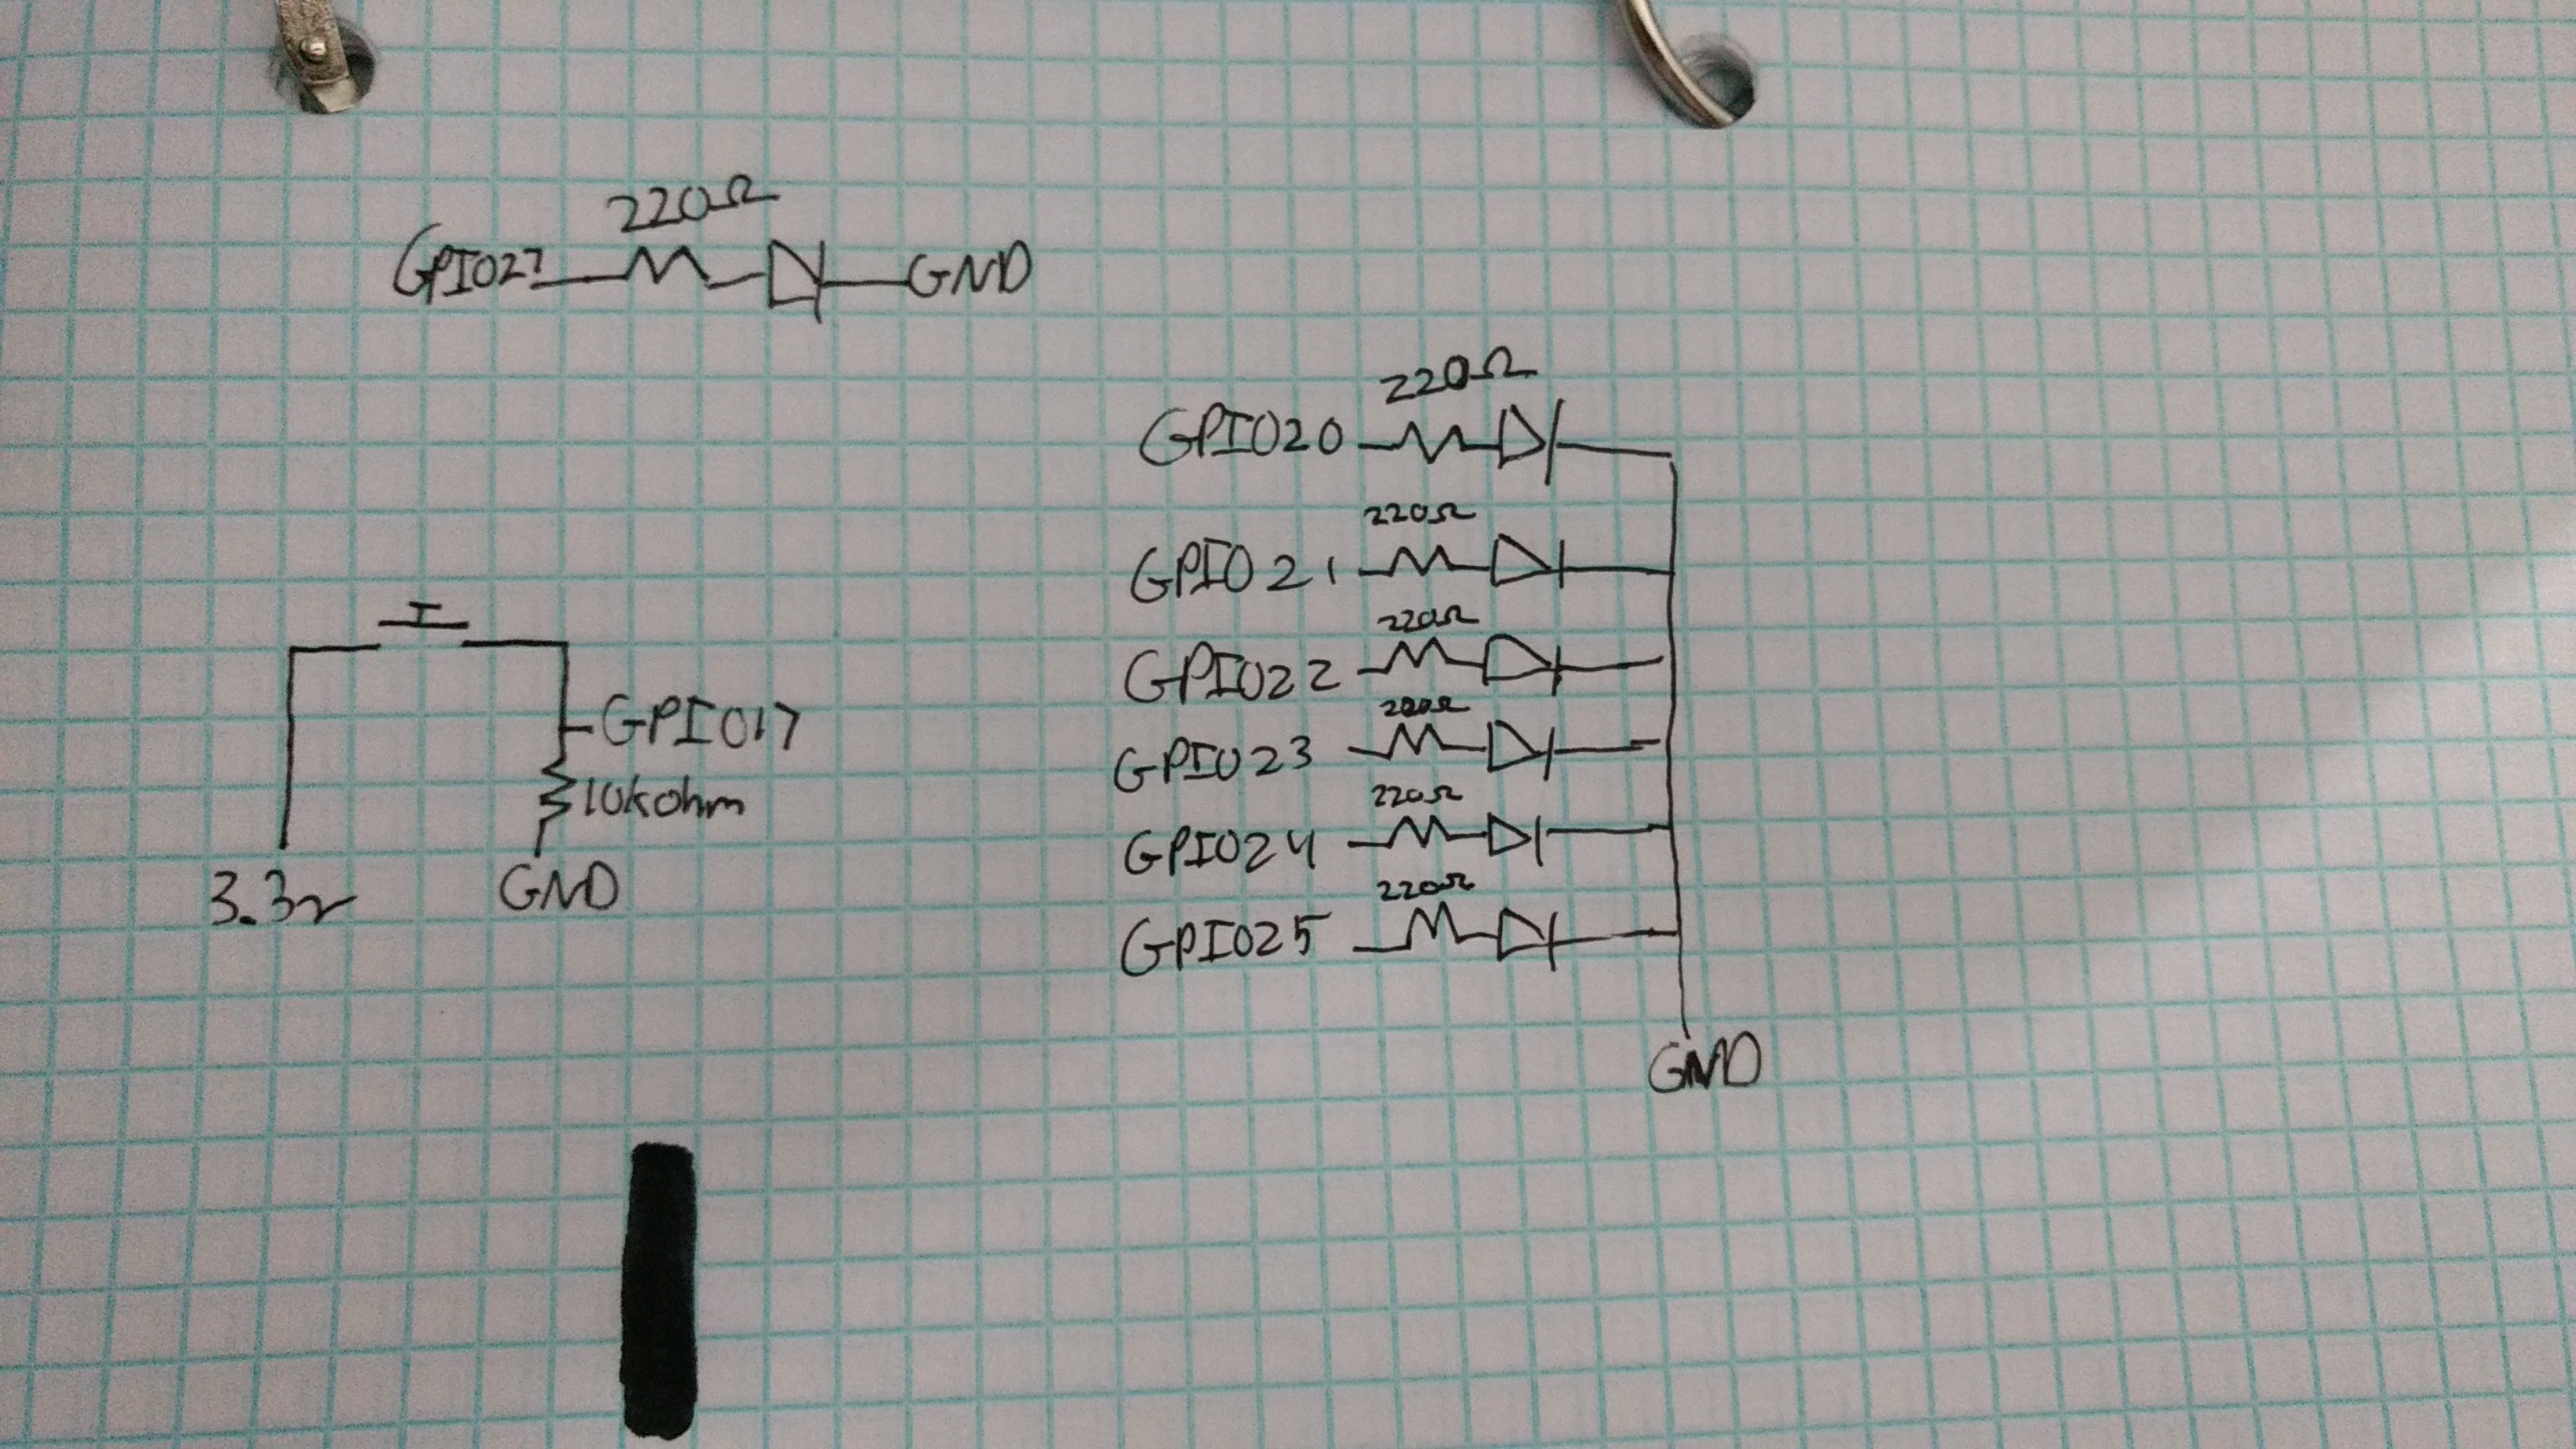 220Ω
GPIO27
GND
220Ω
GPIO20
220Ω
GPIO21
220Ω
GPIO22
220Ω
GPIO23
220Ω
GPIO24
220Ω
GPIO25
GND
GPIO17
10kohm
3.3v
GND